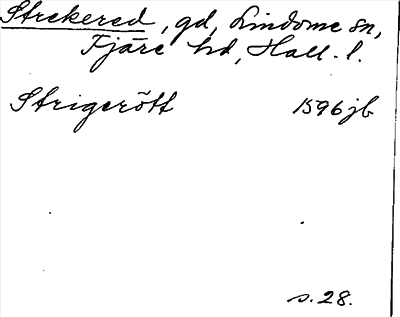 Strekered, gd, Lindome sn,
Fjäre hd, Hall. l.
Strigerött 1596 jb
s. 28.